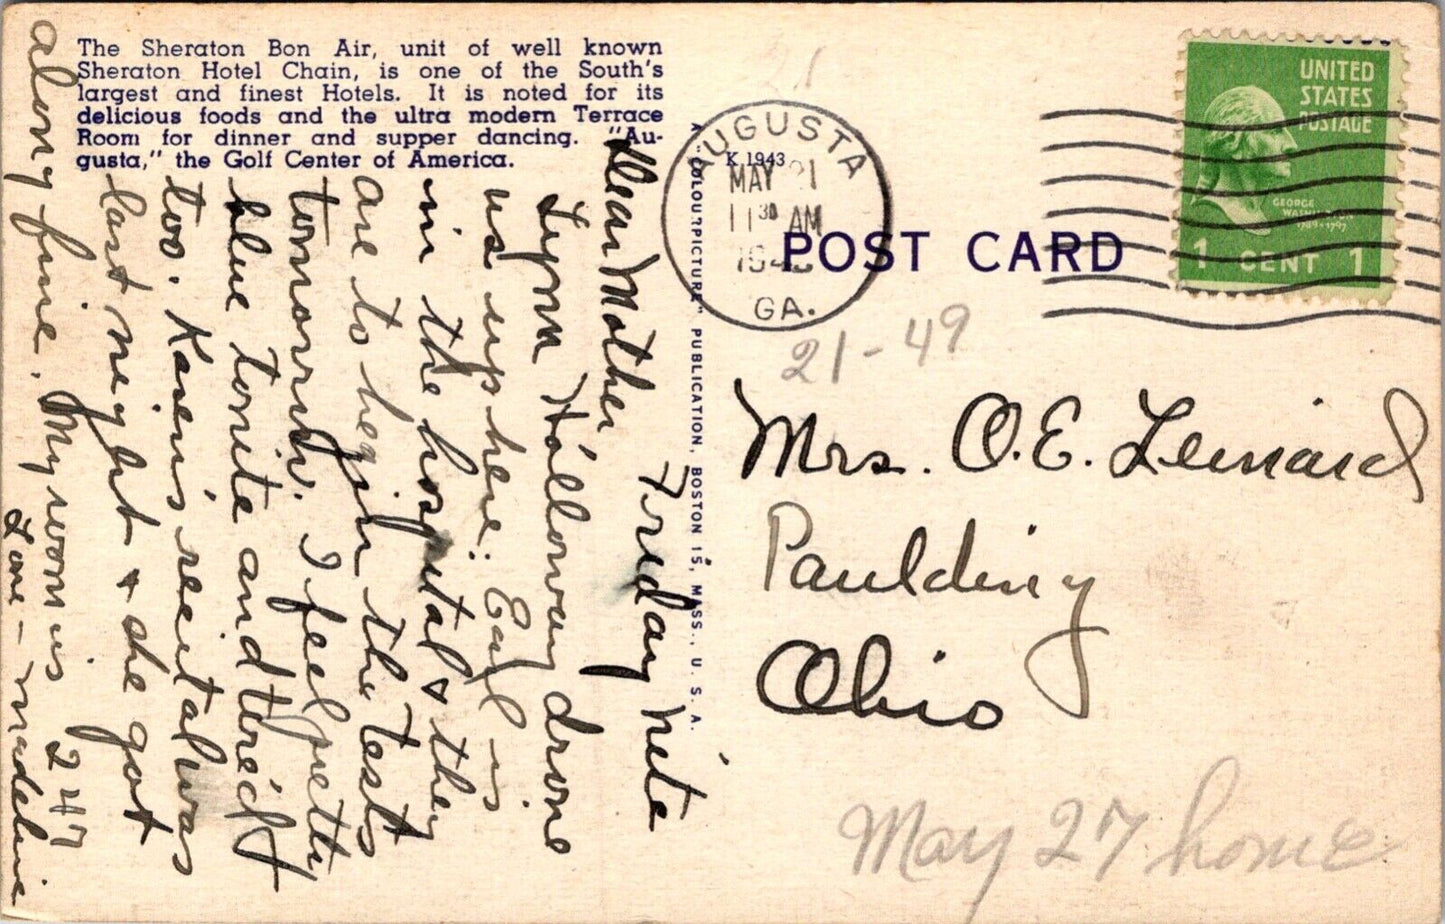 The Sheraton Bon Air, unit of well known
Sheraton Hotel Chain, is one of the South's
largest and finest Hotels. It is noted for its
delicious foods and the ultra modern Terrace
Room for dinner and supper dancing. "Au-
gusta," the Golf Center of America.
Friday nite
Dear Mother
Lynn Holloway drove
us up here. Earl is
in the hospital & they
are to begin the tests
tomorrow. I feel pretty
blue tonite and tired
too. Karen's recital was
last night & she got
along fine. My room is 247
Love - Madeline
A "COLOURPICTURE" PUBLICATION, BOSTON 15, MASS., U. S. A.
K 1943
AUGUSTA
MAY 21
11 30 AM
GA.
POST CARD
UNITED
STATES
POSTAGE
GEORGE
WASHINGTON
1789-1797
1 CENT 1
21-49
Mrs. O. E. Leonard
Paulding
Ohio
May 27 home